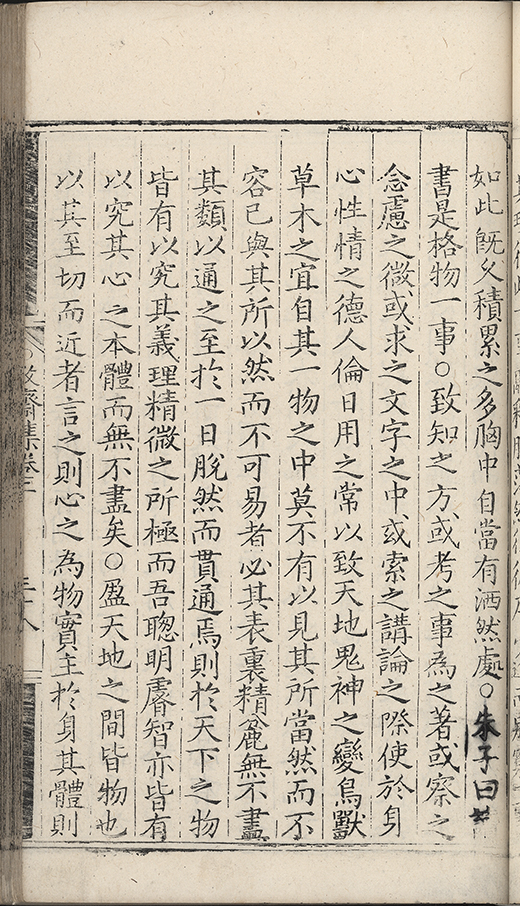 如此旣久積累之多胸中自當有洒然處○朱子曰
書是格物一事○致知之方或考之事爲之著或察之
念慮之微或求之文字之中或索之講論之際使於身
心性情之德人倫日用之常以致天地鬼神之變鳥獸
草木之宜自其一物之中莫不有以見其所當然而不
容已與其所以然而不可易者必其表裏精麄無不盡
其類以通之至於一日脫然而貫通焉則於天下之物
皆有以究其義理精微之所極而吾聰明睿智亦皆有
以究其心之本體而無不盡矣○盈天地之間皆物也
以其至切而近者言之則心之為物實主於身其體則
齋集卷三